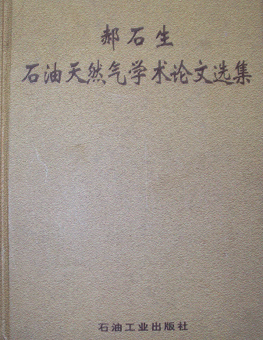 郝石生
石油天然气学术论文选集
石油工业出版社